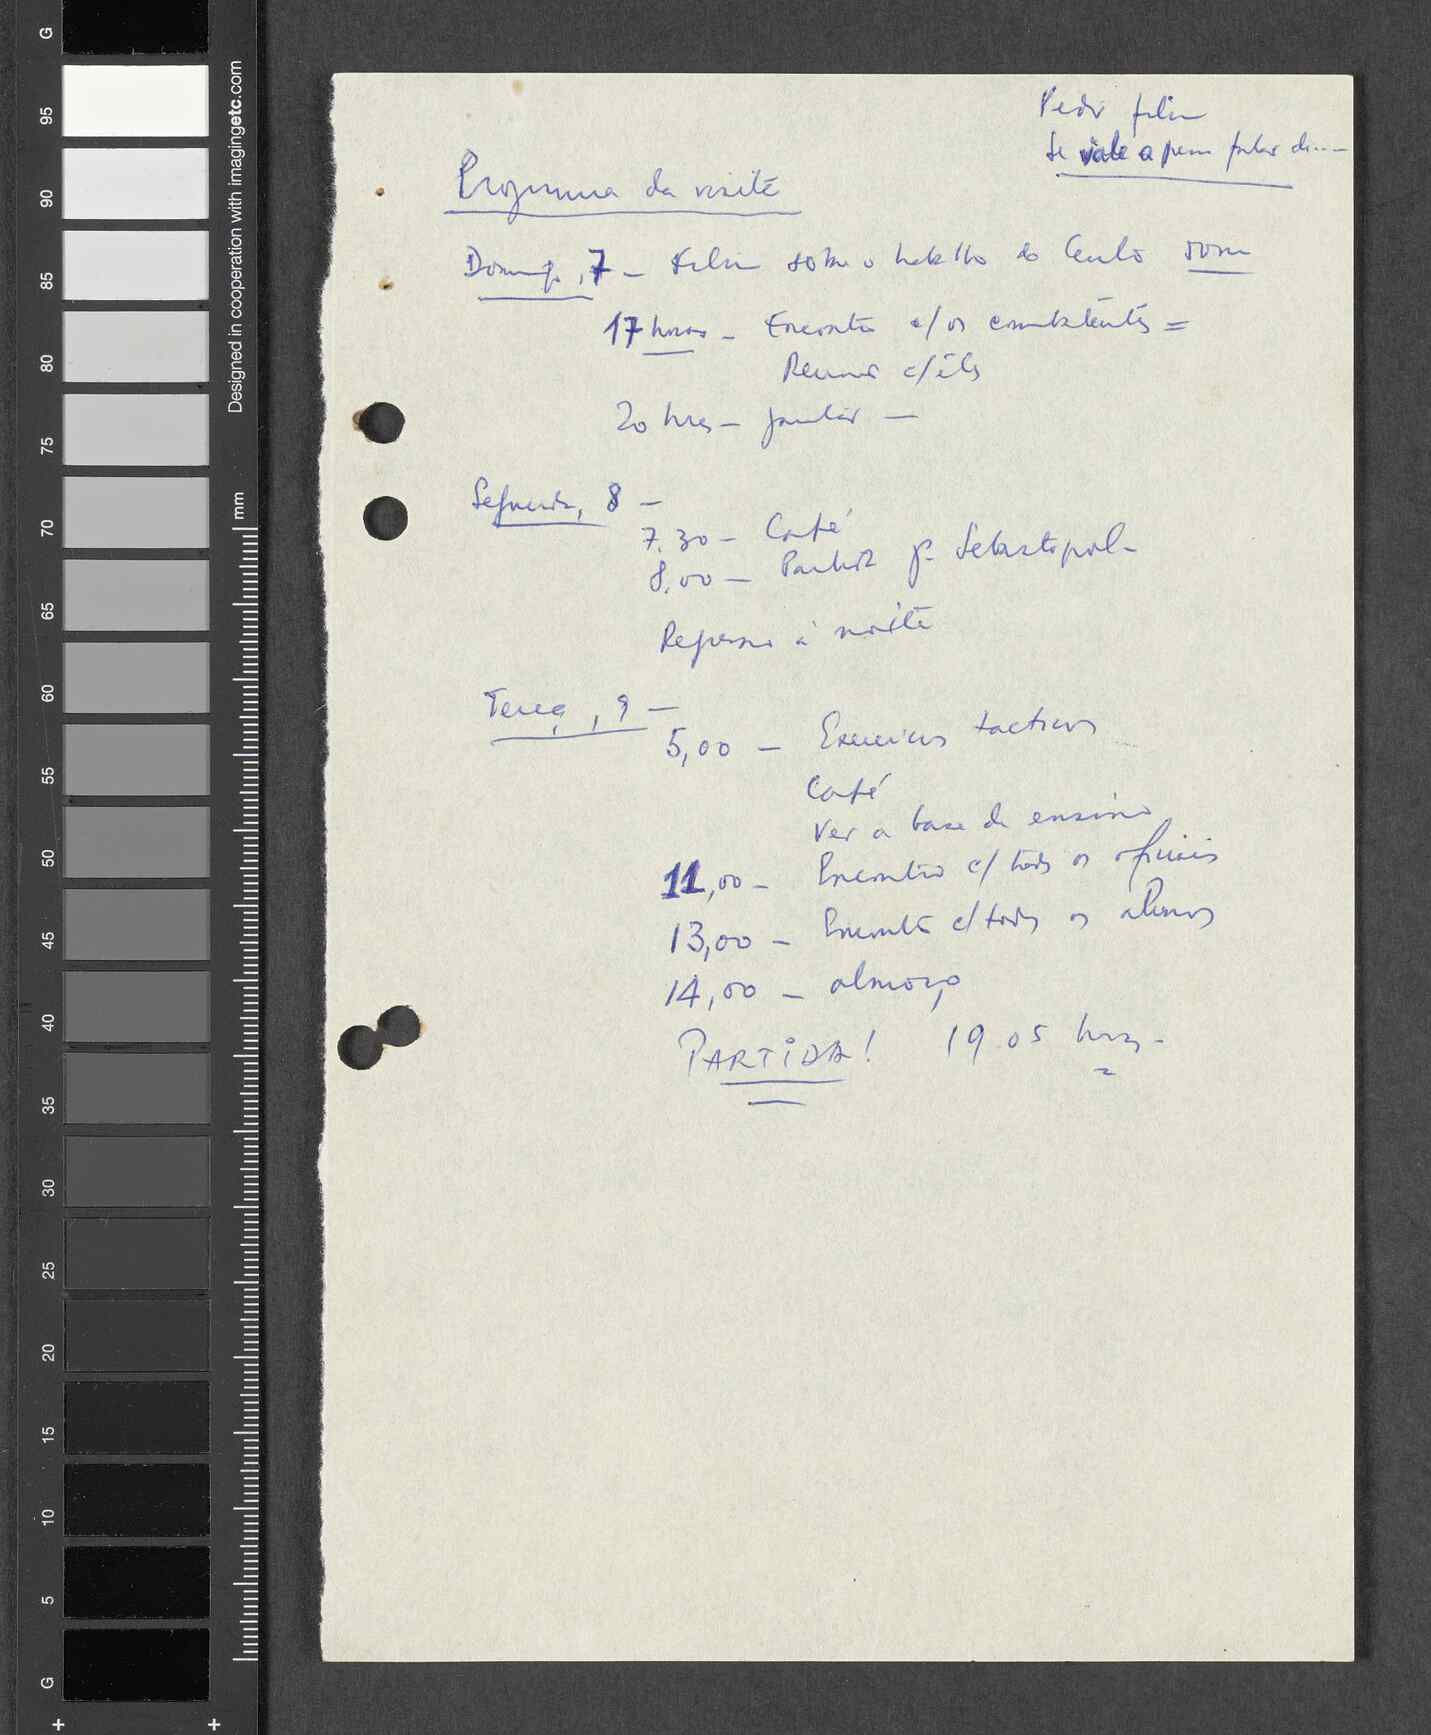 Pedir filme
Se vale a pena falar de....
Programa da visita
Domingo, 7 – Filme sobre o trabalho do Centro
17 horas – Encontro c/ os combatentes =
Reunião c/ êles
20 hres – jantar —
Segunda, 8 –
7.30 – Café
8.00 – Partida pª Sebastopol –
Regresso à noite
Terça, 9 —
5,00 – Exercícios tacticos
Café
Ver a base de ensino
11,00 – Encontro c/ todos os oficiais
13,00 – Encontro c/ todos os alunos
14,00 – almoço
PARTIDA! 19.05 hras –
G
95
90
85
80
75
70
65
60
55
50
45
40
35
30
25
20
15
10
5
G
Designed in cooperation with imagingetc.com
mm